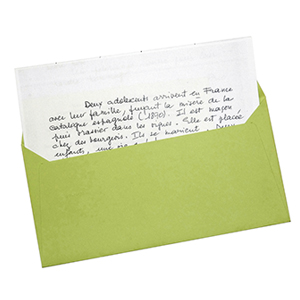 Deux adolescents arrivent en France
avec leur famille, fuyant la misère de la
Catalogne espagnole (1890). Il est maçon
puis ouvrier dans les vignes. Elle est placée
chez des bourgeois. Ils se marient. Deux
enfants, une